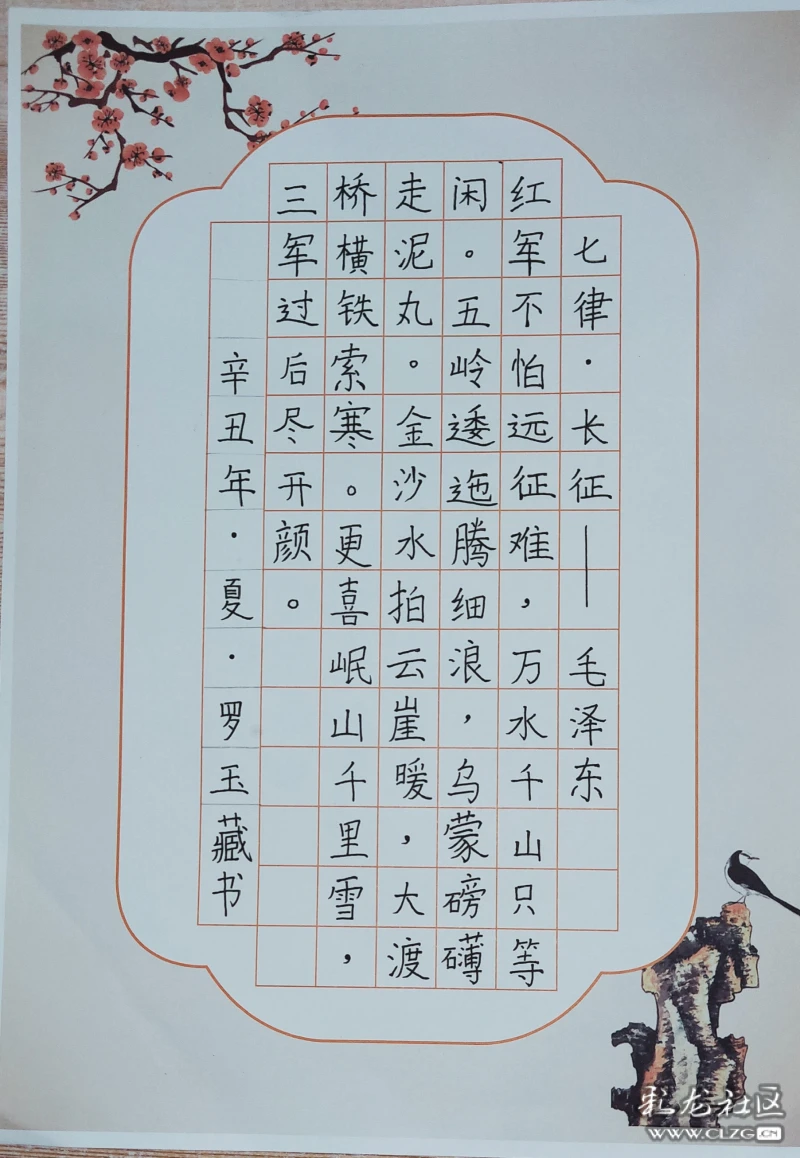 七律·长征——毛泽东
红军不怕远征难，万水千山只等
闲。五岭逶迤腾细浪，乌蒙磅礴
走泥丸。金沙水拍云崖暖，大渡
桥横铁索寒。更喜岷山千里雪，
三军过后尽开颜。
辛丑年·夏·罗玉藏书
彩龙社区
www.CLZG.CN